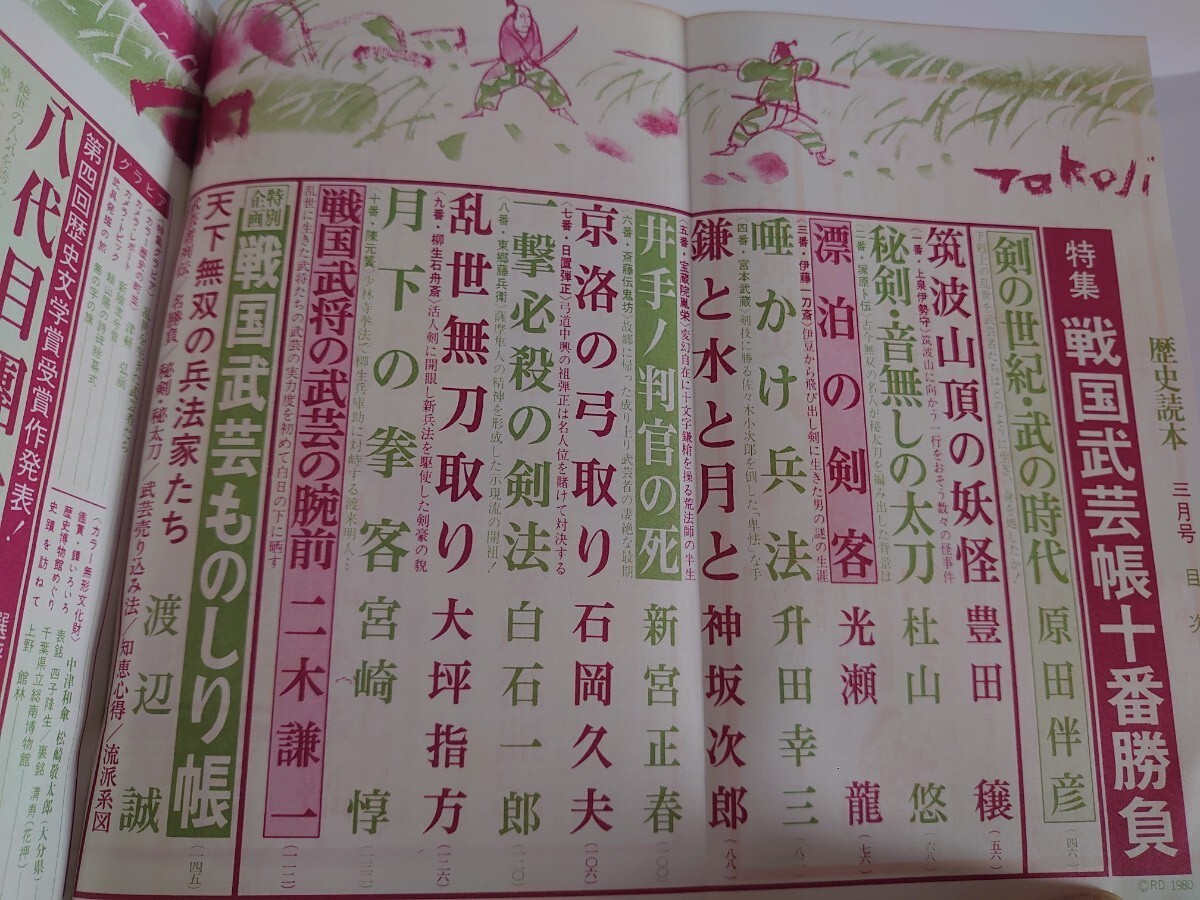 Takoji
歴史読本 三月号 目次
特集 戦国武芸帳十番勝負
剣の世紀・武の時代 原田伴彦 (四六)
筑波山頂の妖怪 豊田穣 (五六)
〈一番・上泉伊勢守〉筑波山に向かう一行をおそう数々の怪事件
秘剣・音無しの太刀 杜山悠 (六八)
〈二番・塚原卜伝〉古今無双の名人が秘太刀を編み出した背景は
漂泊の剣客 光瀬龍 (七六)
〈三番・伊藤一刀斎〉伊豆から飛び出し剣に生きた男の謎の生涯
唾かけ兵法 升田幸三
〈四番・宮本武蔵〉剣技に勝る佐々木小次郎を倒した「卑怯」な手
鎌と水と月と 神坂次郎 (八八)
〈五番・宝蔵院胤栄〉変幻自在に十文字鎌槍を操る荒法師の半生
井手ノ判官の死 新宮正春 (一〇〇)
〈六番・斎藤伝鬼坊〉故郷に帰った成り上り武芸者の凄絶な最期
京洛の弓取り 石岡久夫 (一〇六)
〈七番・日置弾正〉弓道中興の祖弾正は名人位を賭けて対決する
一撃必殺の剣法 白石一郎 (一二〇)
〈八番・東郷藤兵衛〉薩摩隼人の精神を形成した示現流の開祖!
乱世無刀取り 大坪指方 (一二六)
〈九番・柳生石舟斎〉活人剣に開眼し新兵法を駆使した剣豪の貌
月下の拳客 宮崎惇 (一三二)
〈十番・陳元贇〉少林寺拳法で柳生兵庫助に対峙する渡来明人…
戦国武将の武芸の腕前 二木謙一 (一一二)
乱世に生きた武将たちの武芸の実力度を初めて白日の下に晒す
特別企画 戦国武芸ものしり帳 (一四五)
天下無双の兵法家たち 渡辺誠
名勝負/秘剣 秘太刀/武芸売り込み法/知恵心得/流派系図
グラビア
〈カラー・無形文化財〉 中津和傘 松崎敬太郎(大分県)
鑑賞・鍾いろいろ 表銘 四子降生/裏銘 清寿(花押)
歴史博物館めぐり 千葉県立総南博物館
史蹟を訪ねて 上野 館林
第四回歴史文学賞受賞作発表!
八代目團
©RD 1980